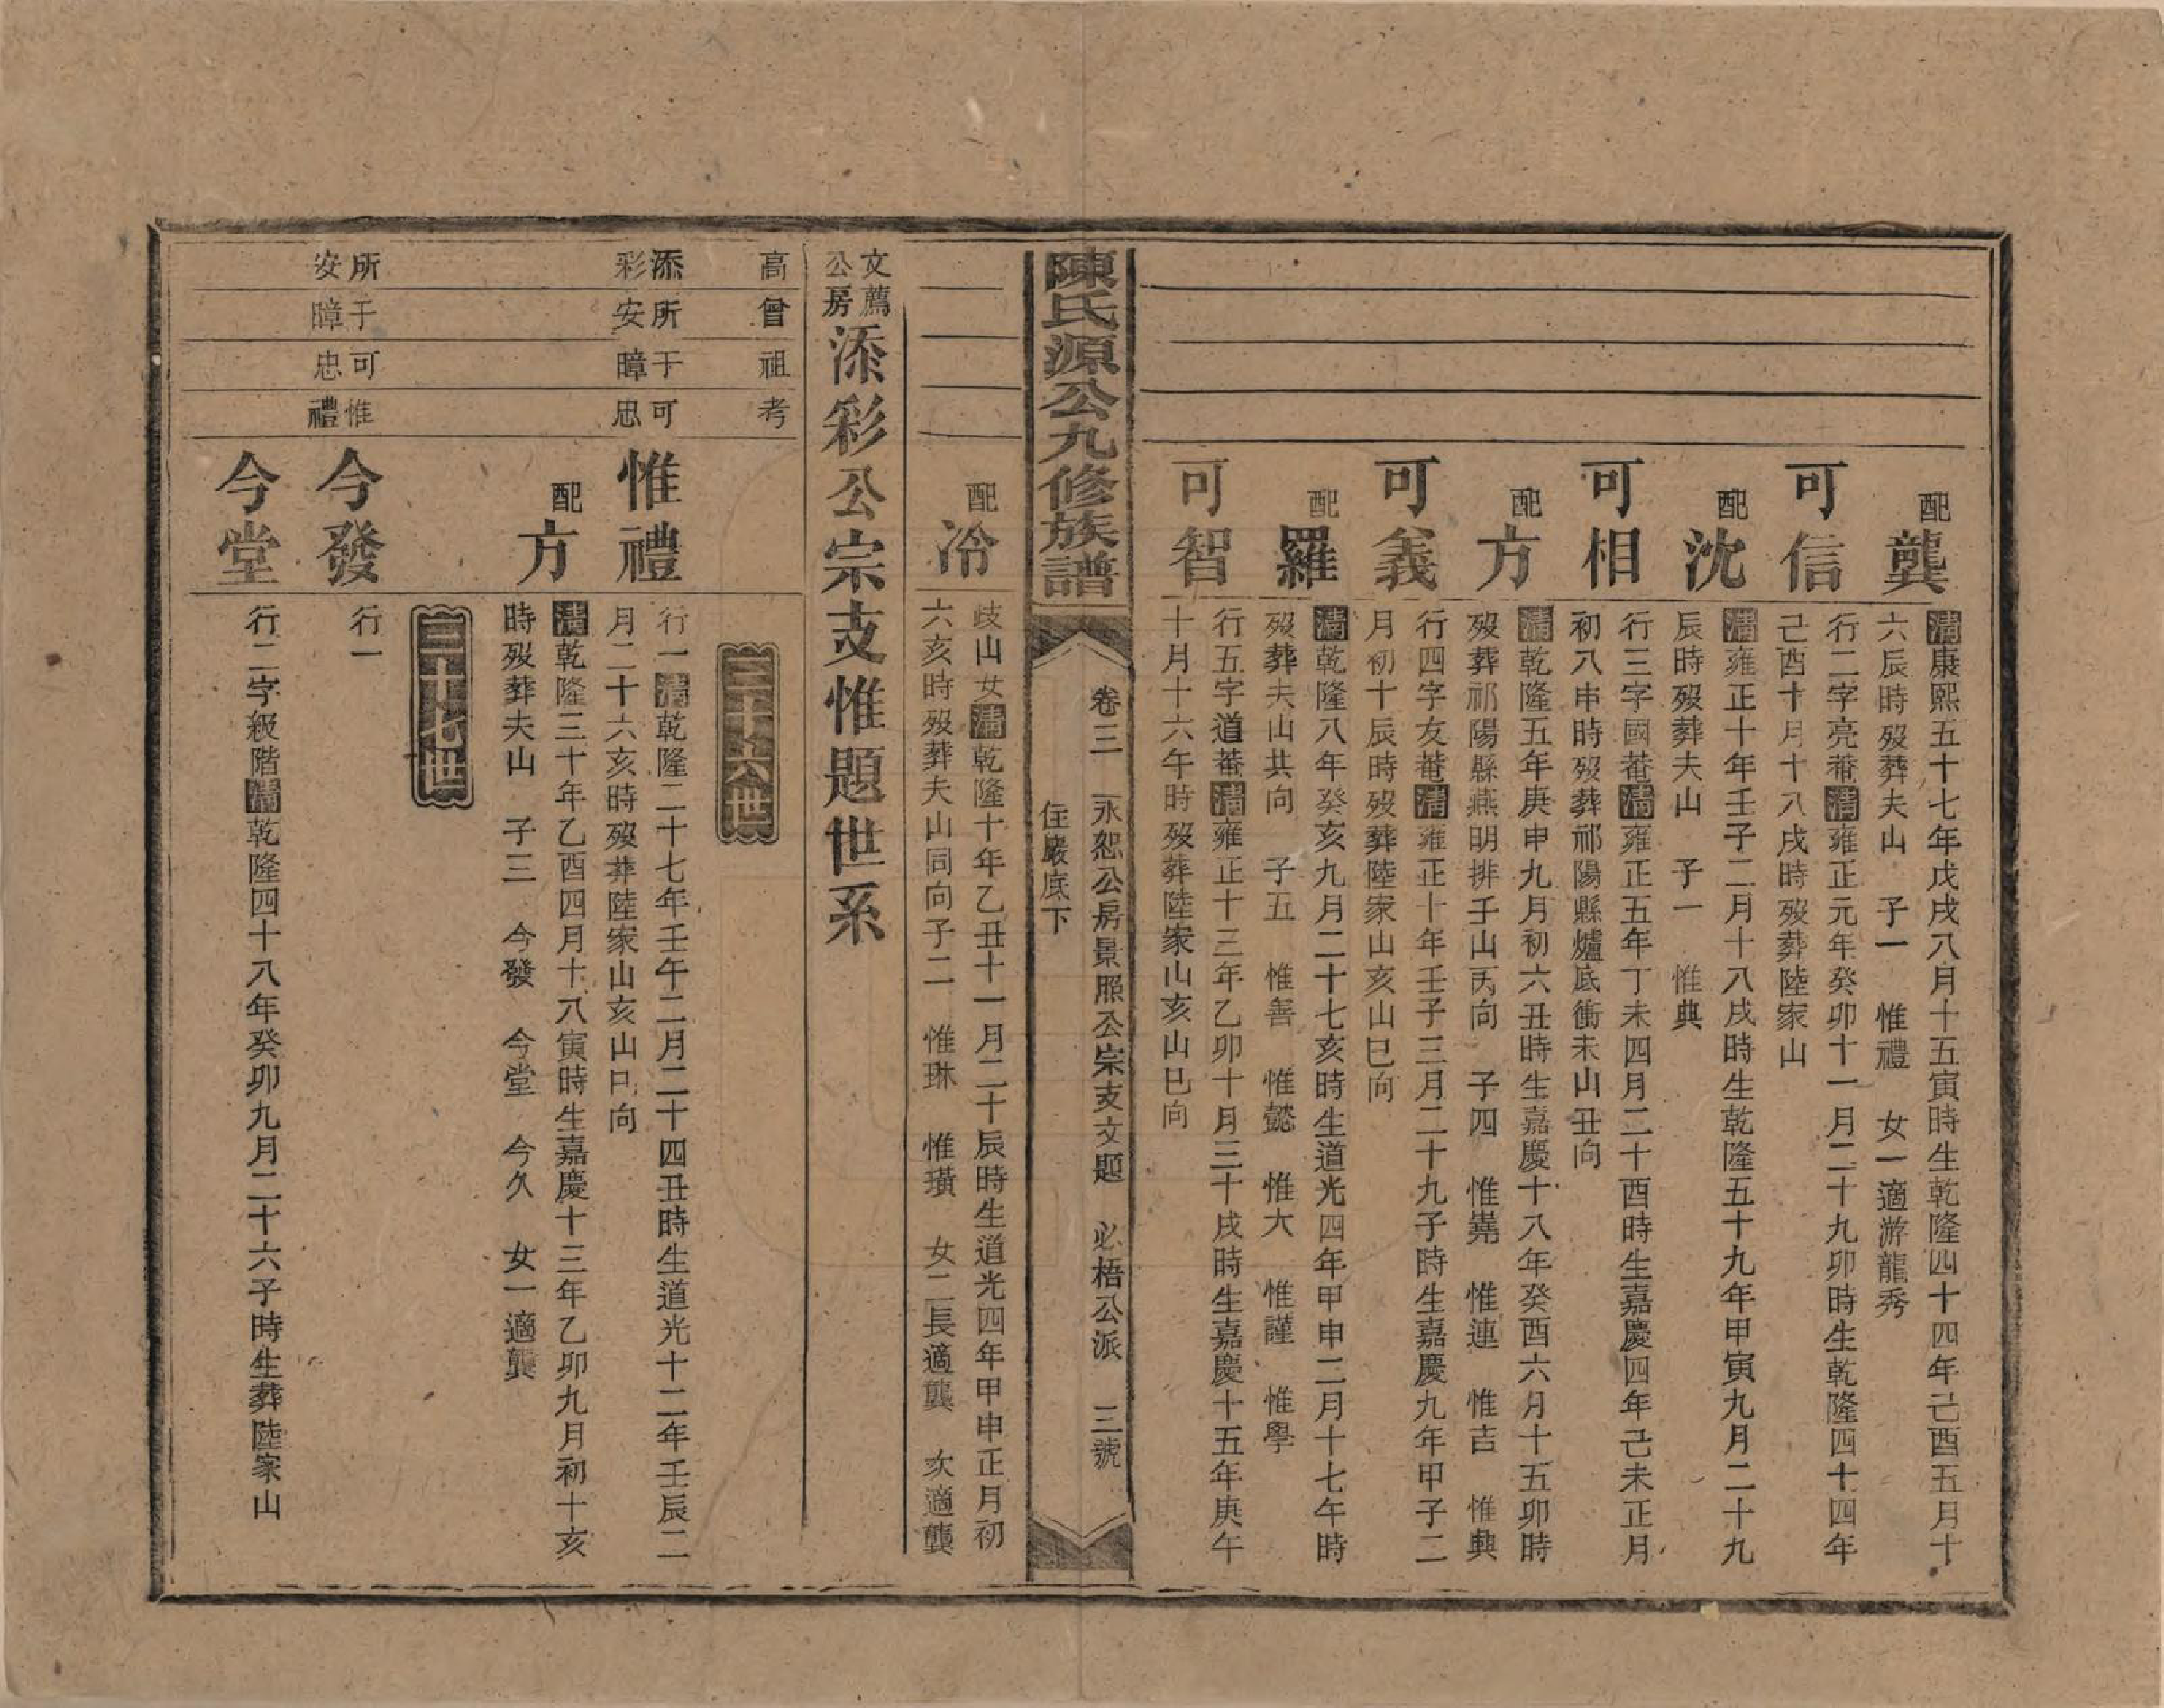 配龔
清康熙五十七年戊戌八月十五寅時生乾隆四十四年己酉五月十
六辰時歿葬夫山　子一　惟禮　女一適游龍秀
可信
行二字亮菴清雍正元年癸卯十一月二十九卯時生乾隆四十四年
己酉十月十八戌時歿葬陸家山
配沈
清雍正十年壬子二月十八戌時生乾隆五十九年甲寅九月二十九
辰時歿葬夫山　子一　惟典
可相
行三字國菴清雍正五年丁未四月二十酉時生嘉慶四年己未正月
初八申時歿葬祁陽縣爐底衝未山丑向
配方
清乾隆五年庚申九月初六丑時生嘉慶十八年癸酉六月十五卯時
歿葬祁陽縣燕明排壬山丙向　子四　惟嵬　惟連　惟吉　惟興
可義
行四字友菴清雍正十年壬子三月二十九子時生嘉慶九年甲子二
月初十辰時歿葬陸家山亥山巳向
配羅
清乾隆八年癸亥九月二十七亥時生道光四年甲申二月十七午時
歿葬夫山共向　子五　惟善　惟懿　惟大　惟謹　惟學
可智
行五字道菴清雍正十三年乙卯十月三十戌時生嘉慶十五年庚午
十月十六午時歿葬陸家山亥山巳向
陳氏源公九修族譜
卷三　永恕公房景照公宗支文題　必梧公派　三號
住巖底下
配冷
歧山女清乾隆十年乙丑十一月二十辰時生道光四年甲申正月初
六亥時歿葬夫山同向子二　惟琳　惟璜　女二長適龔　次適龔
文薦公房
添彩公宗支惟題世系
高曾祖考
三十六世
添彩
所安
于暲
可忠
惟禮
行一清乾隆二十七年壬午二月二十四丑時生道光十二年壬辰二
月二十六亥時歿葬陸家山亥山巳向
配方
清乾隆三十年乙酉四月十八寅時生嘉慶十三年乙卯九月初十亥
時歿葬夫山　子三　今發　今堂　今久　女一適龔
三十七世
所安
于暲
可忠
惟禮
今發
行一
今堂
行二字級階清乾隆四十八年癸卯九月二十六子時生葬陸家山